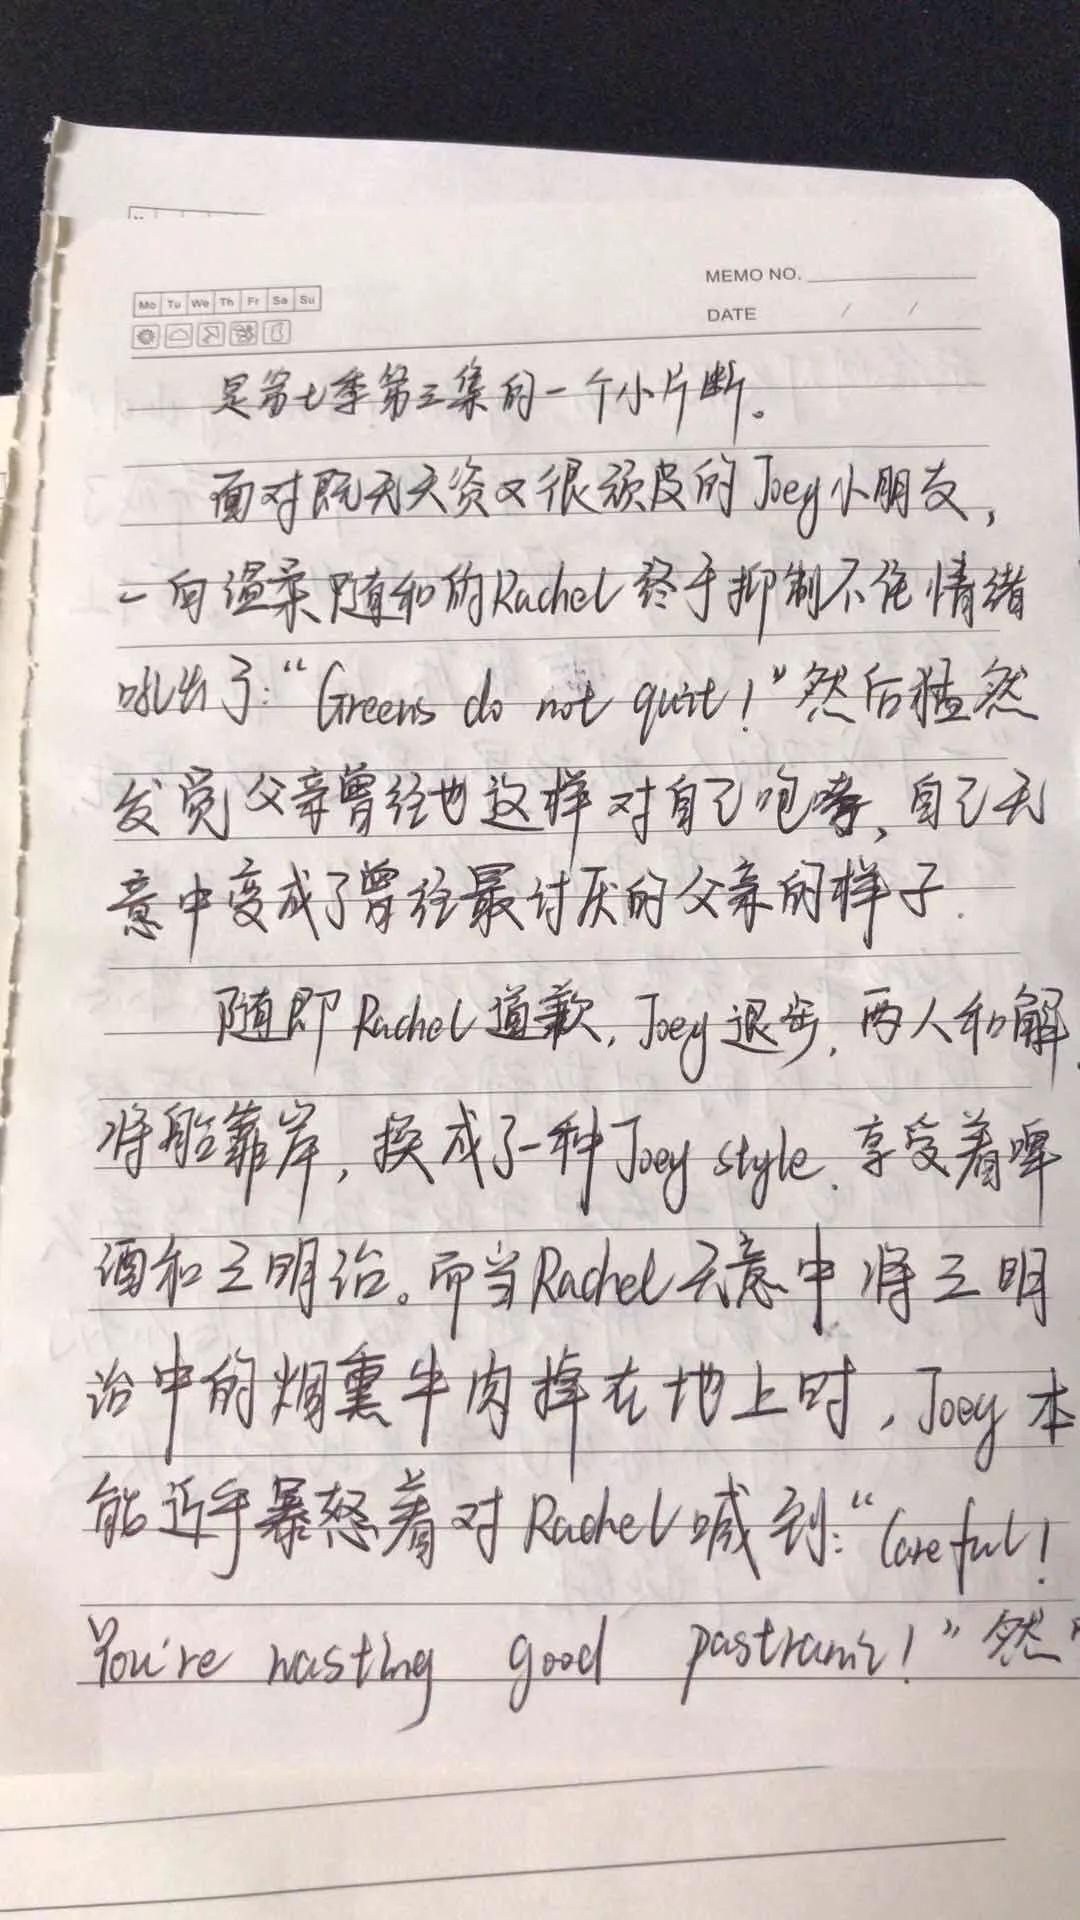 MEMO NO.
Mo Tu We Th Fr Sa Su
DATE / /
是第七季第三集的一个小片断。
面对既无天资又很顽皮的Joey小朋友，
一向温柔随和的Rachel终于抑制不住情绪
吼出了：“Greens do not quit！”然后猛然
发觉父亲曾经也这样对自己咆哮，自己无
意中变成了曾经最讨厌的父亲的样子.
随即Rachel道歉，Joey退步，两人和解，
将船靠岸，换成了一种Joey style，享受着啤
酒和三明治。而当Rachel无意中将三明
治中的烟熏牛肉掉在地上时，Joey本
能近乎暴怒着对Rachel喊到：“Careful！
You're wasting good pastrami！”然